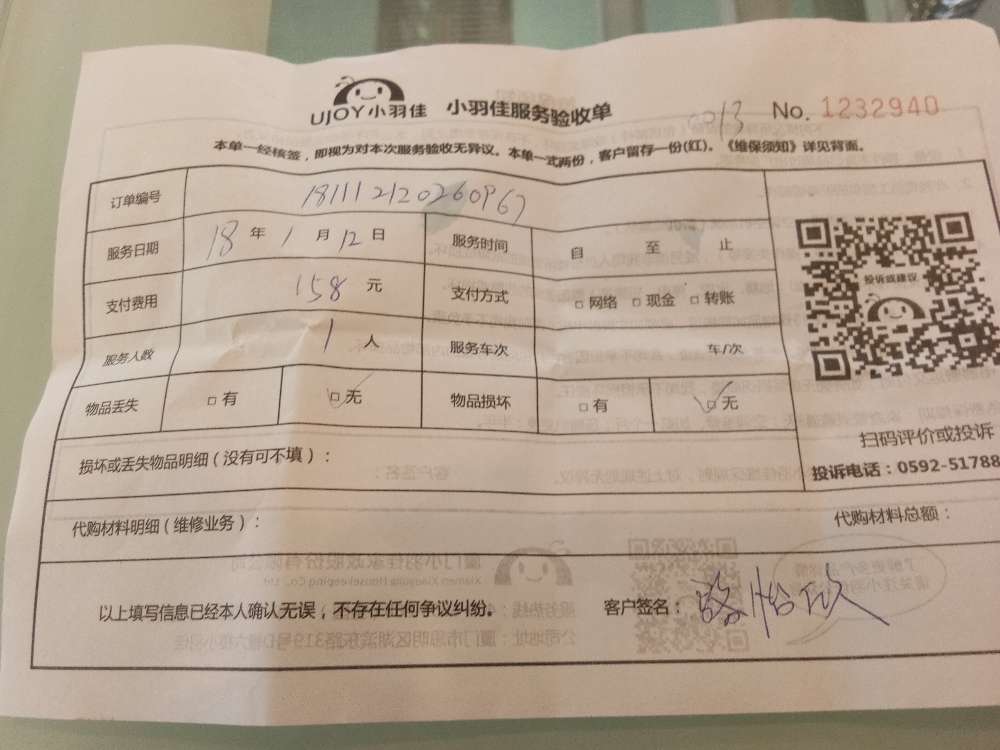 UJOY小羽佳 小羽佳服务验收单 0013 No. 1232940
本单一经核签，即视为对本次服务验收无异议。本单一式两份，客户留存一份(红)。《维保须知》详见背面。
订单编号 181112120260967
服务日期 18 年 1 月 12 日 服务时间 自 至 止
投诉或建议
支付费用 158 元 支付方式 □ 网络 □ 现金 □ 转账
服务人数 1 人 服务车次 车/次
物品丢失 □ 有 □ 无 物品损坏 □ 有 □ 无
扫码评价或投诉
损坏或丢失物品明细（没有可不填）：
投诉电话：0592-51788
代购材料明细（维修业务）： 代购材料总额：
以上填写信息已经本人确认无误，不存在任何争议纠纷。 客户签名：